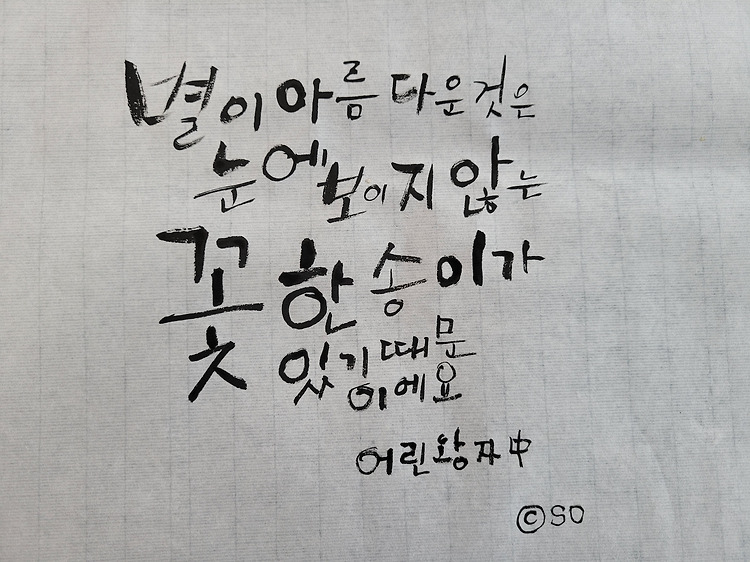 별이 아름다운것은
눈에 보이지 않는
꽃 한 송이가
있기때문
이에요
어린왕자中
©SO